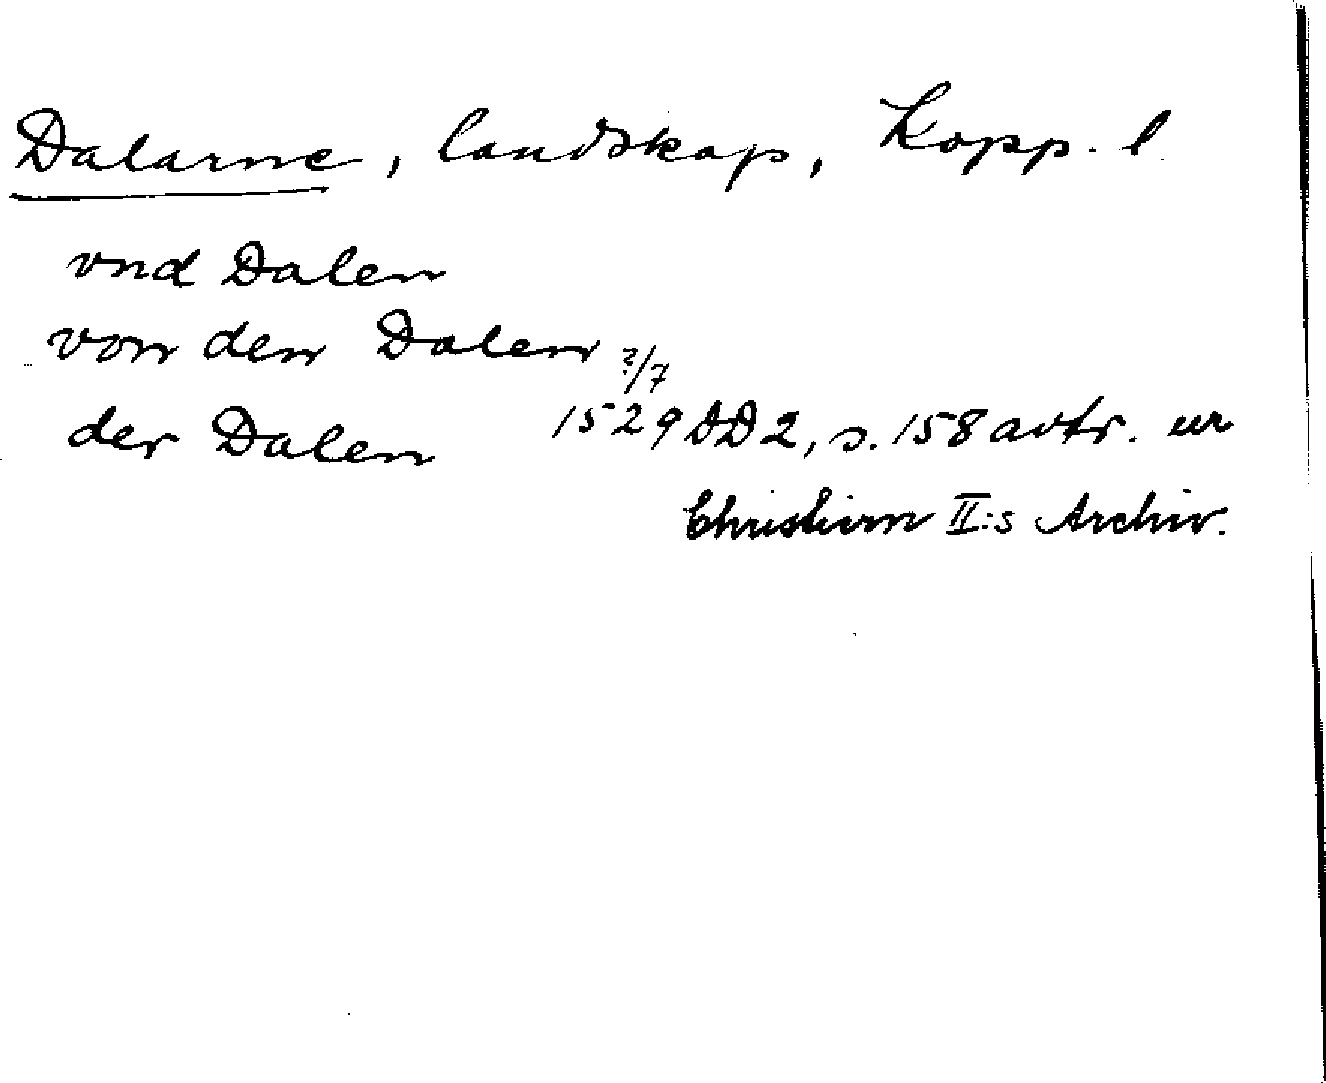 Dalarne, landskap, Kopp. l.
vnd Dalen
von den Dalen
der Dalen ?/7 1529 DD 2, s. 158 avtr. ur
Christiern II:s Archiv.